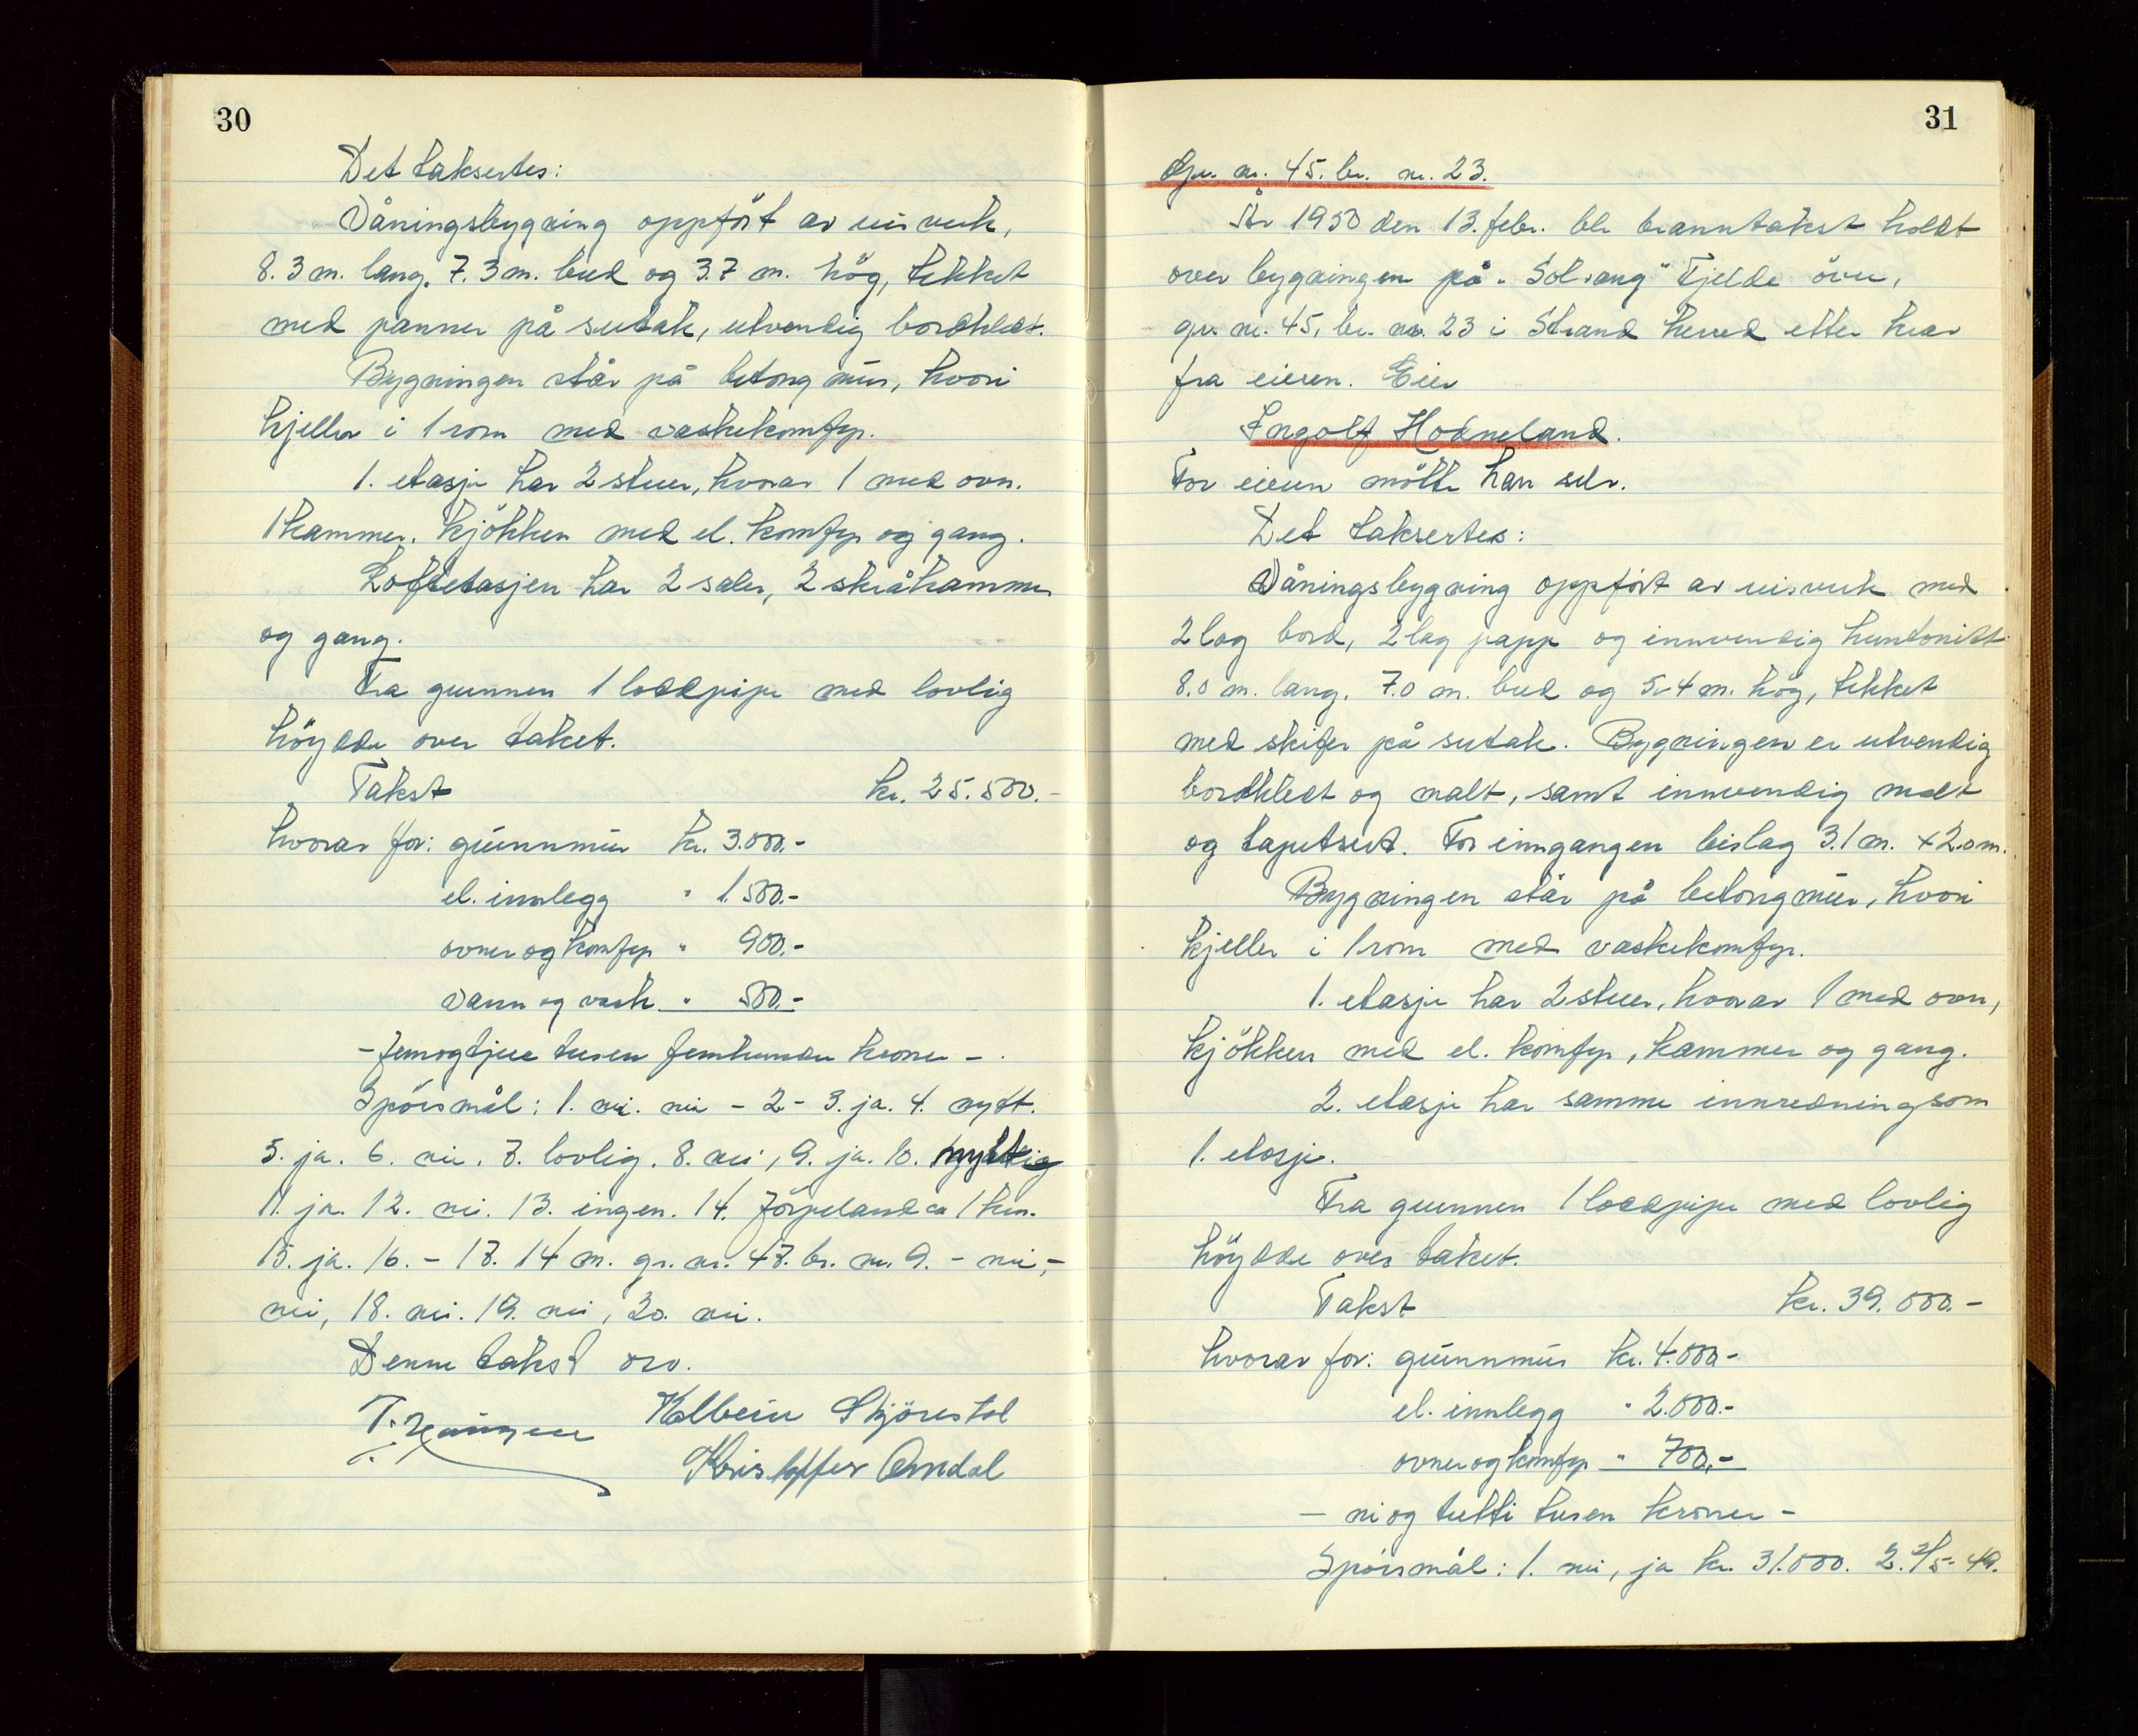 30
Det taksertes:
Våningsbygning oppført av reisverk,
8.3 m. lang. 7.3 m. bred og 3.7 m. høg, tekket
med panner på sutak, utvendig bordkledt.
Bygningen står på betong mur, hvori
kjeller i 1 rom med vaskekomfyr.
1. etasje har 2 stuer, hvorav 1 med ovn.
1 kammer. kjøkken med el. komfyr og gang.
Loftetasjen har 2 saler, 2 skråkammer
og gang.
Fra grunnen 1 loddpipe med lovlig
høydde over taket.
Takst kr. 25.500.-
hvorav for: grunnmur kr. 3.000.-
el. innlegg " 1.500.-
ovner og komfyr " 900.-
vann og vask " 500.-
- femogtjue tusen femhundre kroner -.
Spørsmål: 1. nei. nei - 2 - 3. ja. 4. nytt.
5. ja. 6. nei. 7. lovlig. 8. nei, 9. ja. 10.
11. ja. 12. nei. 13. ingen. 14. Jørpeland ca 1 km.
15. ja. 16. - 17. 14 m. gr. nr. 47. br. nr. 9. - nei,-
nei, 18. nei. 19. nei, 20. nei.
Denne takst osv.
Kolbein Skjørestad
Kristoffer Amdal
31
Gr. nr. 45. br. nr. 23.
År 1950 den 13. febr. ble branntakst holdt
over bygningen på "Solvang" Fjelde øvre,
gr. nr. 45, br. nr. 23 i Strand herred etter krav
fra eieren. Eier
Ingolf Hodneland.
For eieren møtte han selv.
Det taksertes:
Våningsbygning oppført av reisverk med
2 lag bord, 2 lag papp og innvendig huntonitt
8.0 m. lang. 7.0 m. bred og 5.4 m. høg, tekket
med skifer på sutak. Bygningen er utvendig
bordkledt og malt, samt innvendig malt
og tapetsert. For inngangen bislag 3.1 m. x 2.0 m.
Bygningen står på betongmur, hvori
kjeller i 1 rom med vaskekomfyr.
1. etasje har 2 stuer, hvorav 1 med ovn,
kjøkken med el. komfyr, kammer og gang.
2. etasje har samme innredning som
1. etasje.
Fra grunnen 1 loddpipe med lovlig
høydde over taket.
Takst kr. 39.000.-
hvorav for: grunnmur kr. 4.000-
el. innlegg " 2.000.-
ovner og komfyr " 700.-
- ni og tretti tusen kroner -
Spørsmål: 1. nei, ja kr. 31.000. 2. 2/5-49.